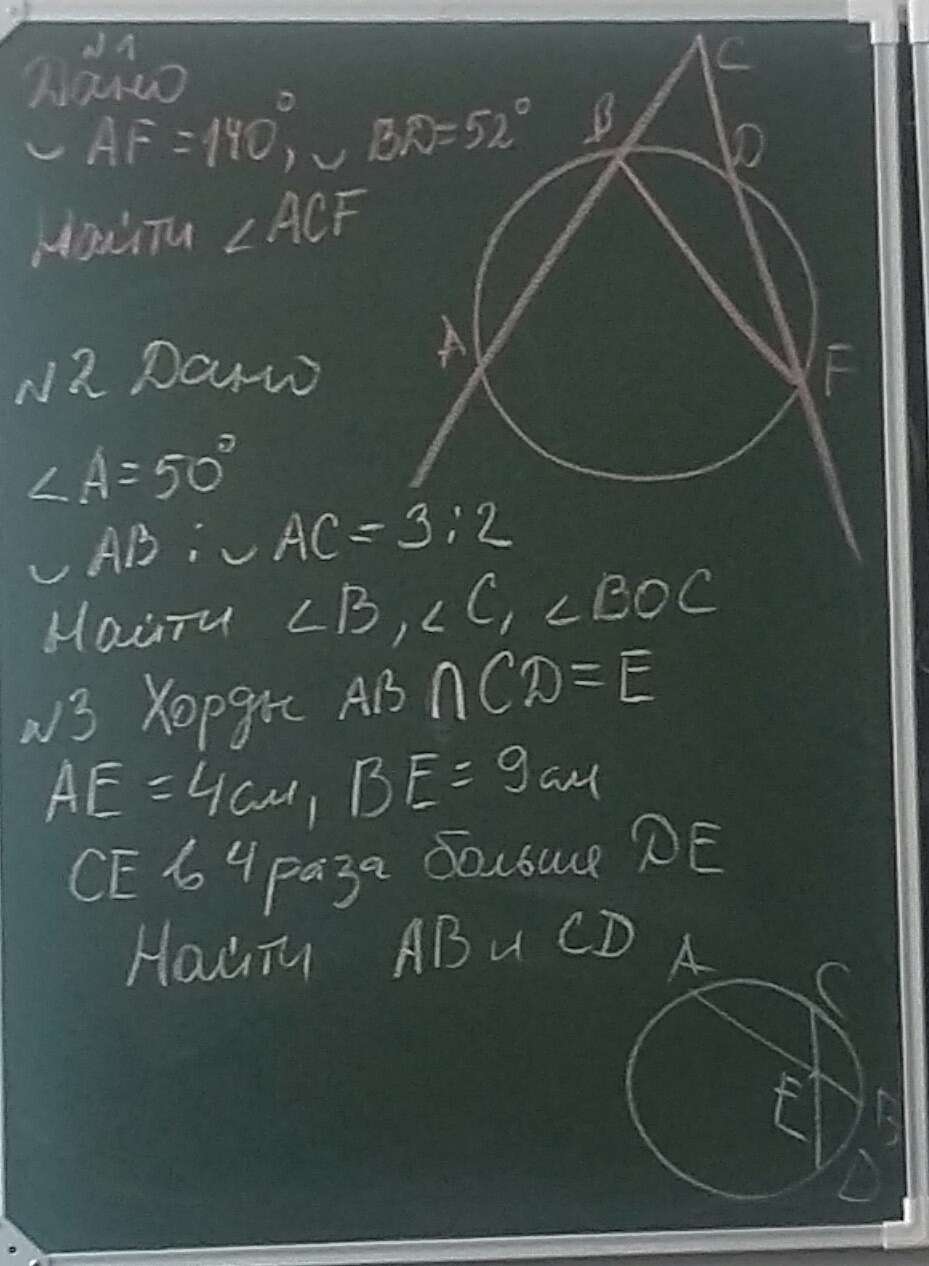 №1
Дано
◡ AF = 140°, ◡ BD = 52°
Найти ∠ACF
№2 Дано
∠A = 50°
◡ AB : ◡ AC = 3 : 2
Найти ∠B, ∠C, ∠BOC
№3 Хорды AB ∩ CD = E
AE = 4 см, BE = 9 см
CE в 4 раза больше DE
Найти AB и CD
C
B
D
A
F
A
C
E
B
D